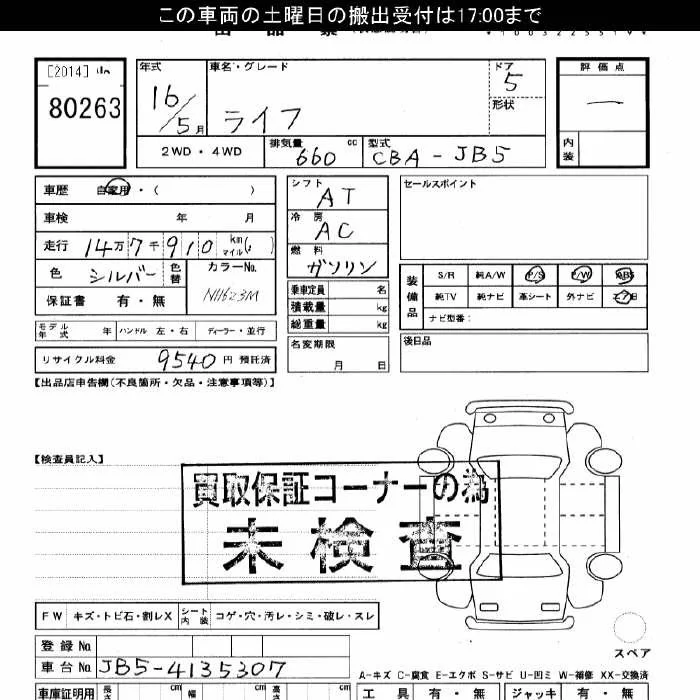 この車両の土曜日の搬出受付は17:00まで
[2014]
80263
年式 16/5月
車名・グレード ライフ
ドア 5
形状
評価点 —
内装
2WD・4WD
排気量 660 cc
型式 CBA-JB5
車歴 自家用・( )
車検 年 月
走行 14万7千910 km マイル( )
色 シルバー 色替
カラーNo. NH623M
保証書 有・無
シフト AT
冷房 AC
燃料 ガソリン
乗車定員 名
積載量 kg
総重量 kg
セールスポイント
装備品
S/R 純A/W P/S P/W ABS
純TV 純ナビ 革シート 外ナビ エアB
ナビ型番:
モデル年式 年 ハンドル 左・右 ディーラー・並行
名変期限 月 日
後日品
リサイクル料金 9540円 預託済
【出品店申告欄(不良箇所・欠品・注意事項等)】
【検査員記入】
買取保証コーナーの為
未検査
FW キズ・トビ石・割レX
シート内装 コゲ・穴・汚レ・シミ・破レ・スレ
スペア
登録No.
車台No. JB5-4135307
A-キズ C-腐食 E-エクボ S-サビ U-凹ミ W-補修 XX-交換済
車庫証明用 長さ cm 幅 cm 高さ cm
工具 有・無 ジャッキ 有・無